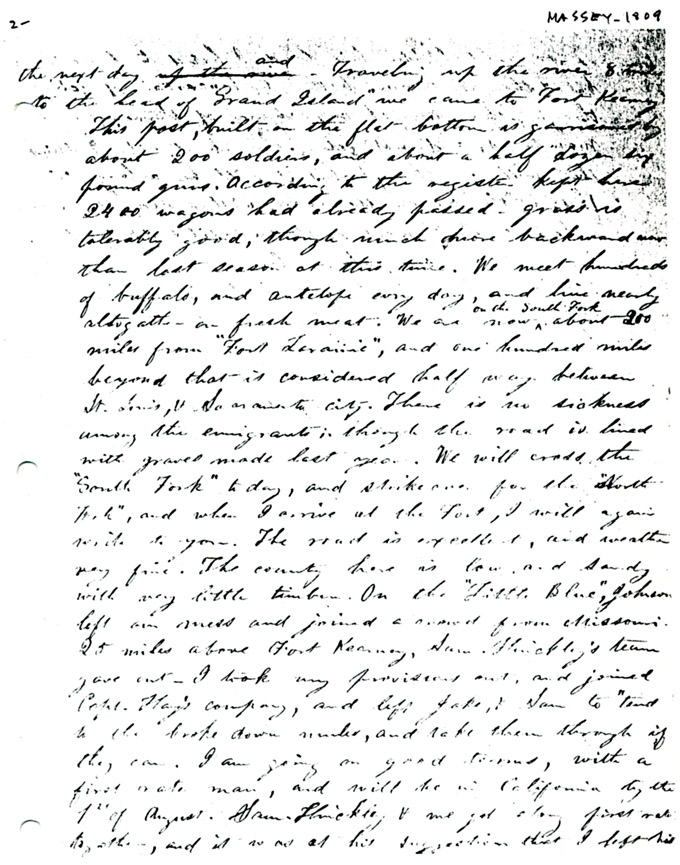 2-
MASSEY-1809
the next day up the river and - Traveling up the river 8
to the head of "Grand Island" we came to "Fort Kearny
This post, built on the flat bottom is garrisoned by
about 200 soldiers, and about a half dozen six
pound guns. According to the register kept here
2400 wagons had already passed - grass is
tolerably good, though much more backward now
than last season at this time. We meet hundreds
of buffalo, and antelope every day, and live nearly
altogather on fresh meat. We are now on the South Fork about 200
miles from "Fort Laramie", and one hundred miles
beyond that is considered half way between
St. Louis, & Sacramento city. There is no sickness
among the emigrants; though the road is lined
with graves made last year. We will cross the
"South Fork" to day, and strike over for the "North
Fork", and when I arrive at the Fort, I will again
write to you. The road is excellent, and weather
very fine. The county here is low and sandy
with very little timber. On the "Little Blue", Johnson
left our mess and joined a crowd from Missouri.
25 miles above Fort Kearney, Sam. Hinckley's team
gave out - I took my provisions out, and joined
Capt. Hay's company, and left Jake, & Sam to "tend
to the broke down mules, and take them through if
they can. I am going on good terms, with a
first rate man, and will be in California by the
1st of August. Sam Hinckley & me got along first rate
together, and it was at his suggestion that I left his